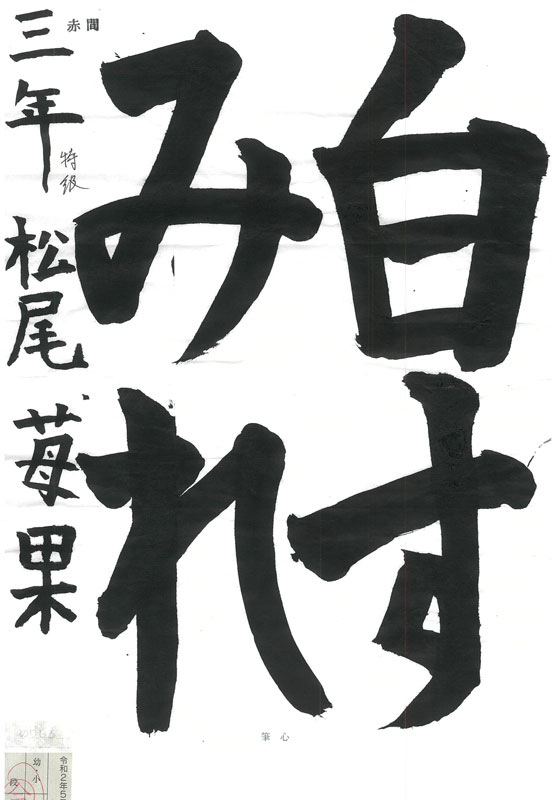 白す
みれ
赤間
三年 松尾苺果
特級
筆心
令和2年5
幼・小
段